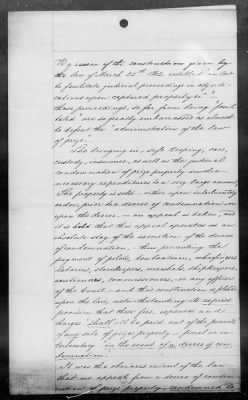 By reason of the construction given by
the law of March 25th 1862, entitled an act
to facilitate judicial proceedings in adjudi-
cations upon captured property &c"
those proceedings, so far from being "facili-
tated" are so greatly embarrassed as almost
to defeat the "administration of the law
of prize."
The bringing in, safe keeping, care,
custody, insurance, as well as the judicial
condemnation of prize property involve
necessary expenditures to a very large amount.
The property is sold either upon interlocutory
order, prior to a decree of condemnation, or
upon the decree. An appeal is taken, and
it is held that this appeal operates as an
absolute stay of the execution of the decree
of condemnation, thus preventing the
payment of pilots, tow boatmen, wharfingers
laborers, stockkeepers, marshals, shipkeepers,
auctioneers, commissioners, or any officers
of the Court and this construction is placed
upon the law, notwithstanding its express
provision that these fees, expenses and
charges "shall be paid out of the proceeds
of any sale of such property, or final or in-
terlocutory in the event of a decree of con-
demnation."
It was the obvious intent of the law
that no appeal from a decree of condem-
nation of prize property, condemned to